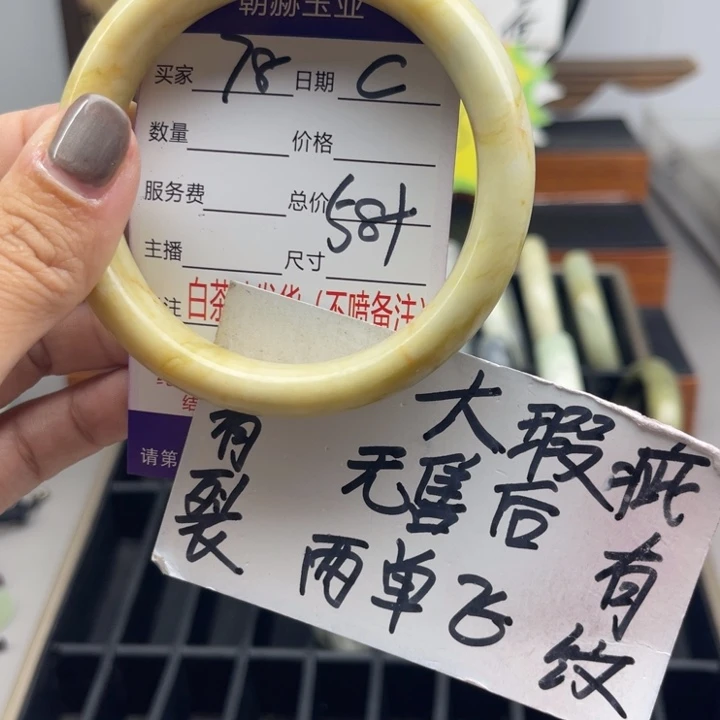 朝赫玉业
买家 78 日期 C
数量 价格
服务费 总价 581
主播 尺寸
注 白茶 发货（不喷备注）
请第
大瑕疵
无售后 有纹
有裂
两单飞